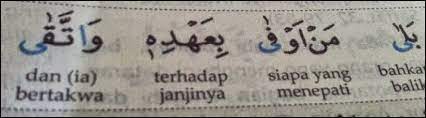 بَلٰى مَنْ اَوْفٰى بِعَهْدِهٖ وَاتَّقٰى
dan (ia) terhadap siapa yang bahka
bertakwa janjinya menepati balik